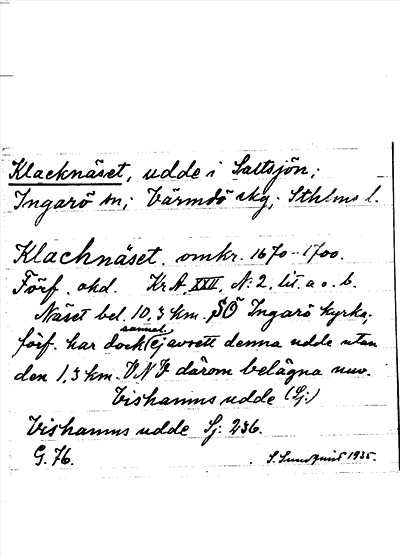 Klacknäset, udde i Saltsjön;
Ingarö sn; Värmdö skg; Sthlms l.
Klachnäset. omkr. 1670-1700.
Förf. okd. Kr A, XXII, N: 2, lit. a o. b.
Näset bel. 10,3 km. SÖ Ingarö kyrka;
förf. har dock (sannol. ej avsett denna udde utan
den 1,3 km. VNV därom belägna nuv.
Vishamns udde (Sj.)
Vishamns udde Sj: 236.
G. 76. S. Sundquist 1935.